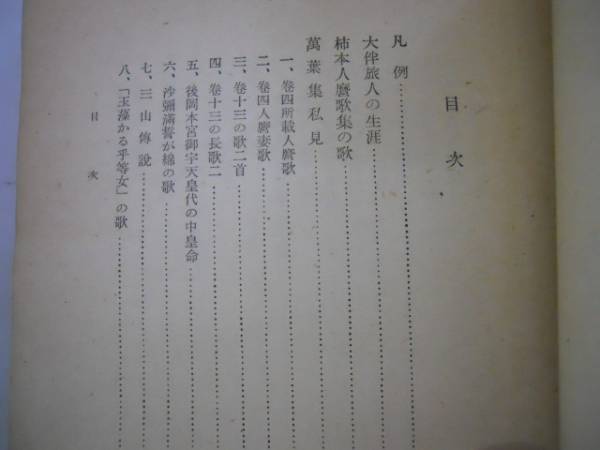 目次
凡例
大伴旅人の生涯
柿本人麿歌集の歌
萬葉集私見
一、卷四所載人麿歌
二、卷四人麿妻歌
三、卷十三の歌二首
四、卷十三の長歌二
五、後岡本宮御宇天皇代の中皇命
六、沙彌滿誓が綿の歌
七、三山傳説
八、「玉藻かる乎等女」の歌
目次